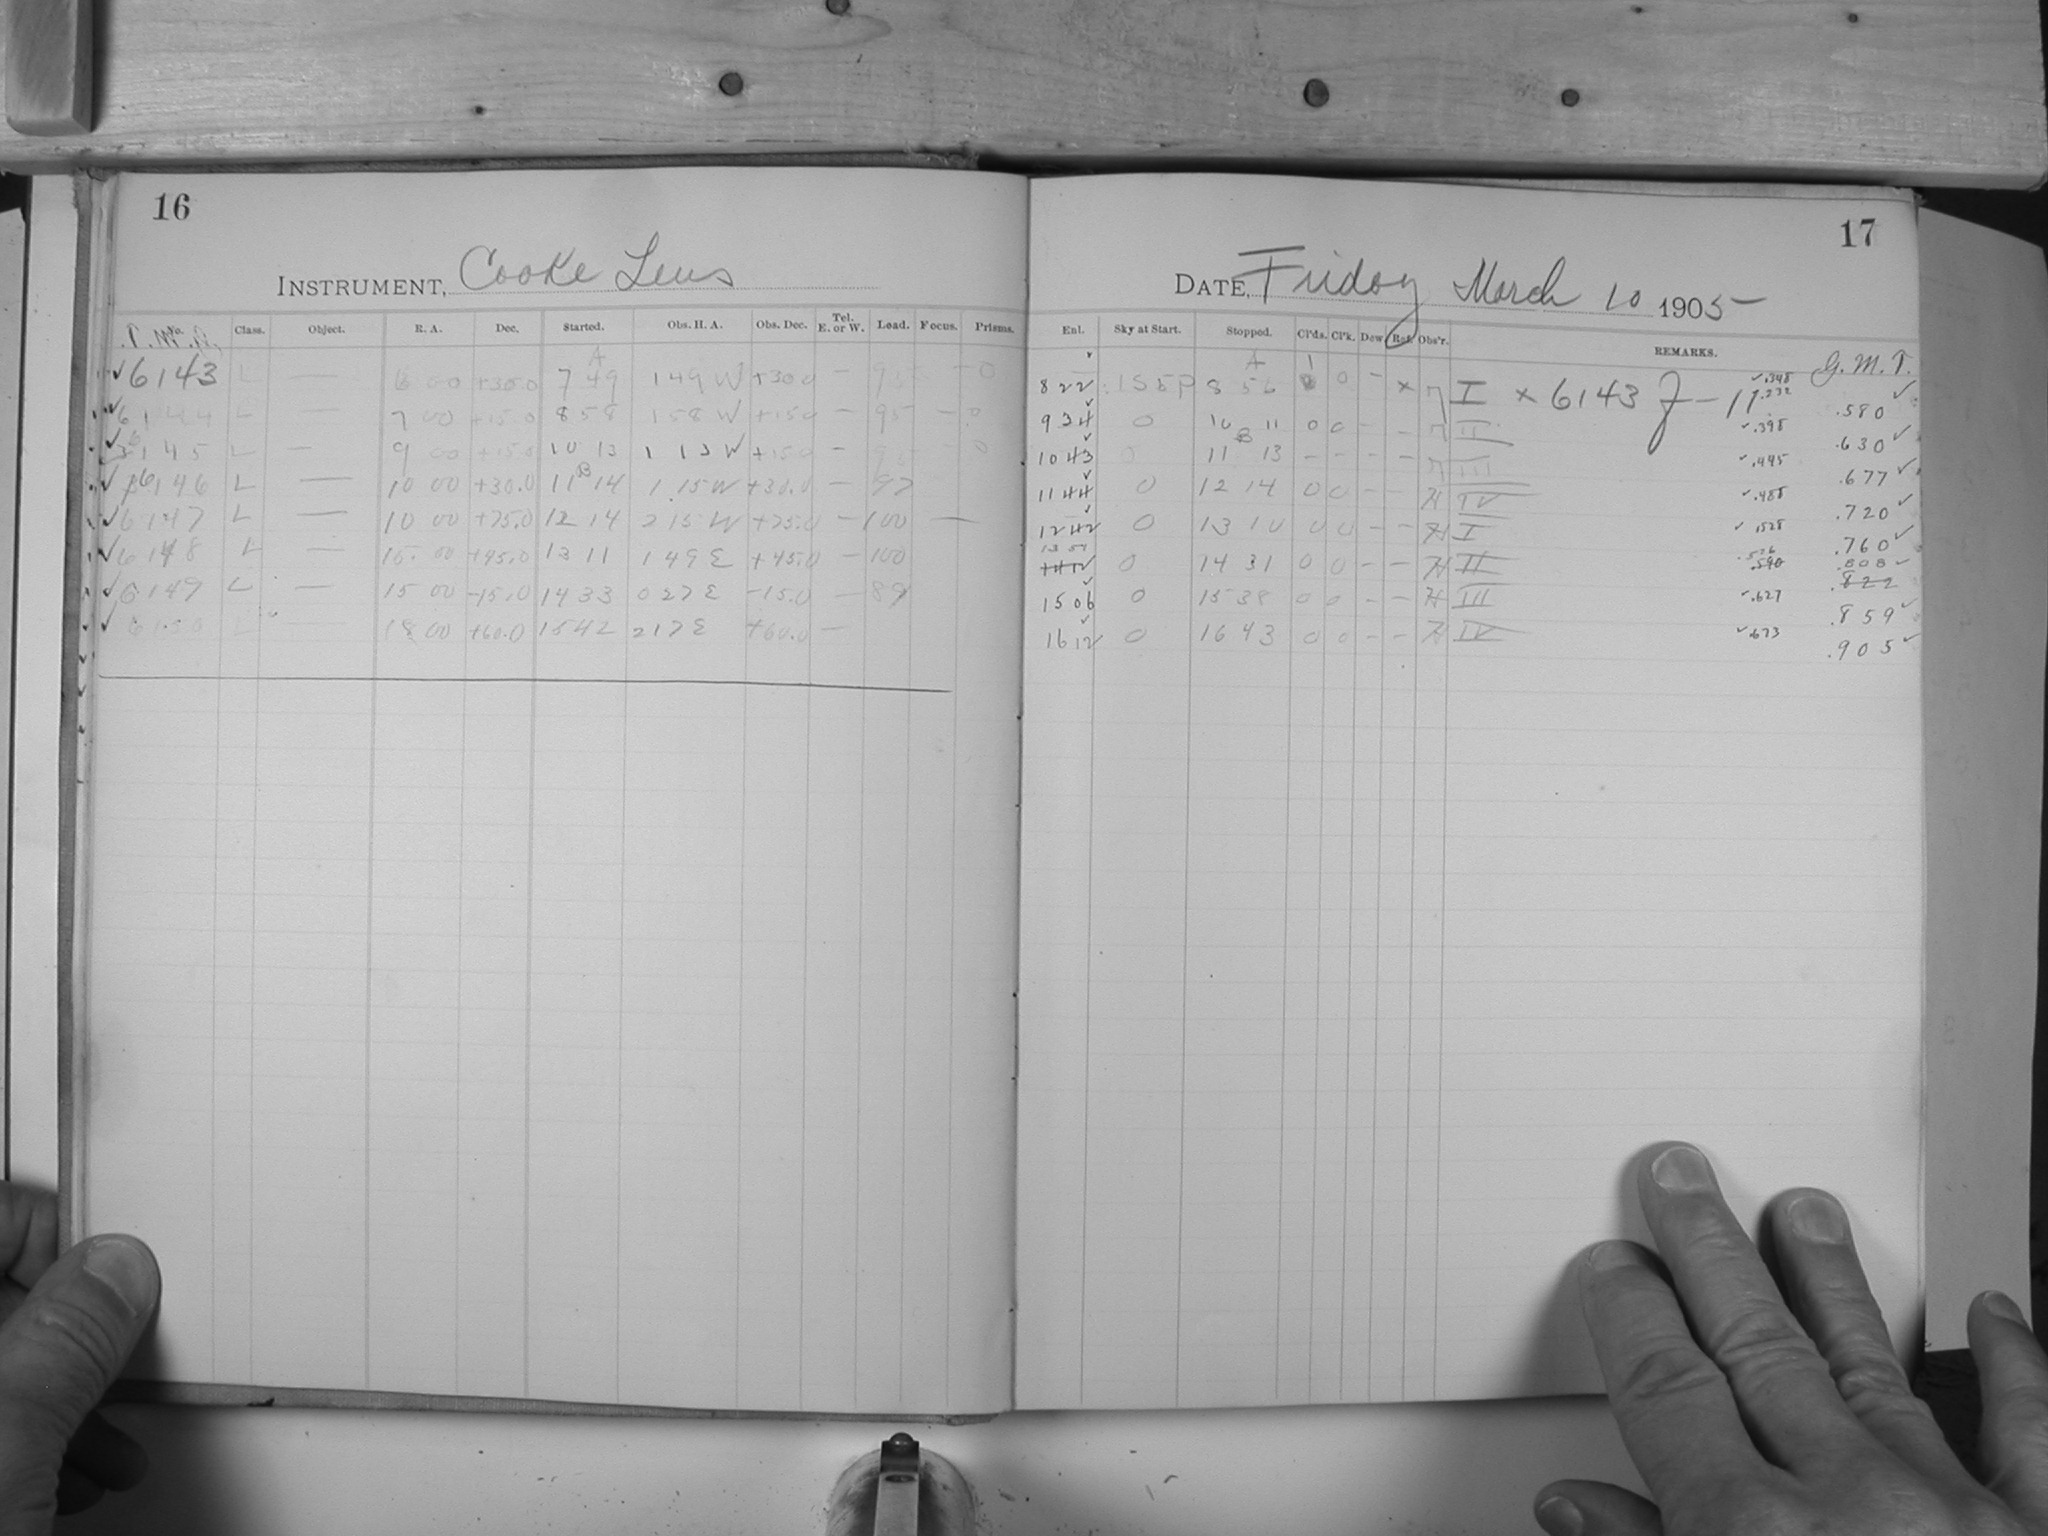 16
INSTRUMENT, Cooke Lens
No. Class. Object. R. A. Dec. Started. Obs. H. A. Obs. Dec. Tel. E. or W. Load. Focus. Prisms.
A
✓6143 L — 6 00 +30.0 7 49 1 49 W +30.0 — 95 — 0
✓6144 L — 7 00 +15.0 8 58 1 58 W +15.0 — 95 — 0
✓6145 L — 9 00 +15.0 10 13 1 13 W +15.0 — 0
B
✓6146 L — 10 00 +30.0 11 14 1 15 W +30.0 — 97
✓6147 L — 10 00 +75.0 12 14 2 15 W +75.0 — 100 —
✓6148 L — 15 00 +45.0 13 11 1 49 E +45.0 — 100
✓6149 L — 15 00 -15.0 14 33 0 27 E -15.0 — 89
✓6150 L 18 00 +60.0 15 42 2 17 E +60.0 —
17
DATE, Friday March 10 1905
Enl. Sky at Start. Stopped. Cl'ds. Cl'k. Dew. Rot. Obs'r. REMARKS. G. M. T.
A 1
8 22 8 56 0 - × I × 6143 J - 11 .348 .232 .580 ✓
9 34 0 10 11 0 0 - - II .398 .630 ✓
B
10 43 0 11 13 - - - - III .445 .677 ✓
11 44 0 12 14 0 0 - - H IV .488 .720 ✓
12 42 0 13 10 0 0 - - H I .528 .760 ✓
13 51 0 14 31 0 0 - - H II .576 .590 .808 ✓ .822
15 06 0 15 38 0 0 - - H III .627 .859 ✓
16 12 0 16 43 0 0 - - H IV .673 .905 ✓